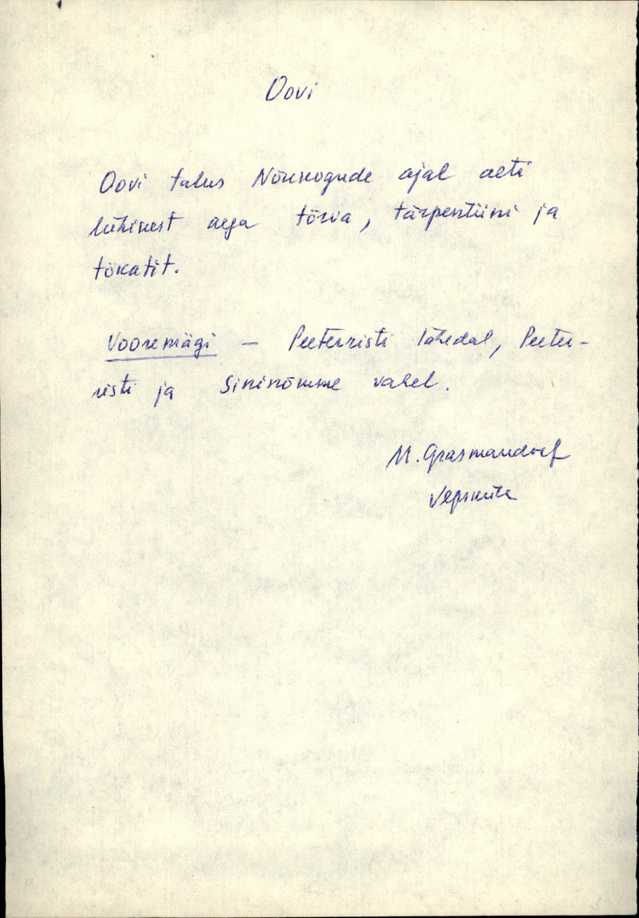 Oovi
Oovi talus Nõukogude ajal aeti
lühikest aega tõrva, tärpentiini ja
tökatit.
Vooremägi – Peeterristi lähedal, Peeter-
risti ja Sininõmme vahel.
M. Grasmandorf